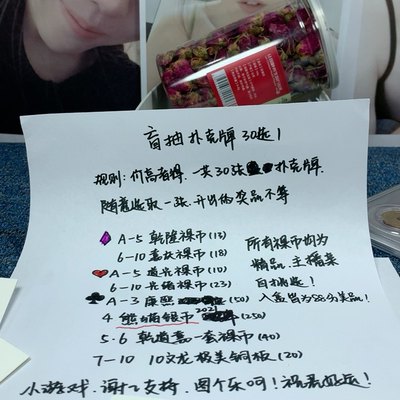 盲抽扑克牌 30选1
规则:价高者得. 一共30张 扑克牌.
随意选取一张. 开出的奖品不等
♦ A-5 乾隆裸币(13)
6-10 嘉庆裸币(18)
♥ A-5 道光裸币(10)
6-10 光绪裸币(23)
♣ A-3 康熙 (50)
4 熊猫银币 2021 (250)
5.6 乾道嘉一套裸币(40)
7-10 10文龙极美铜板(20)
所有裸币均为
精品. 主播亲
自挑选!
入盒皆为 美品!
小游戏. 谢谢支持. 图个乐呵! 祝君好运!